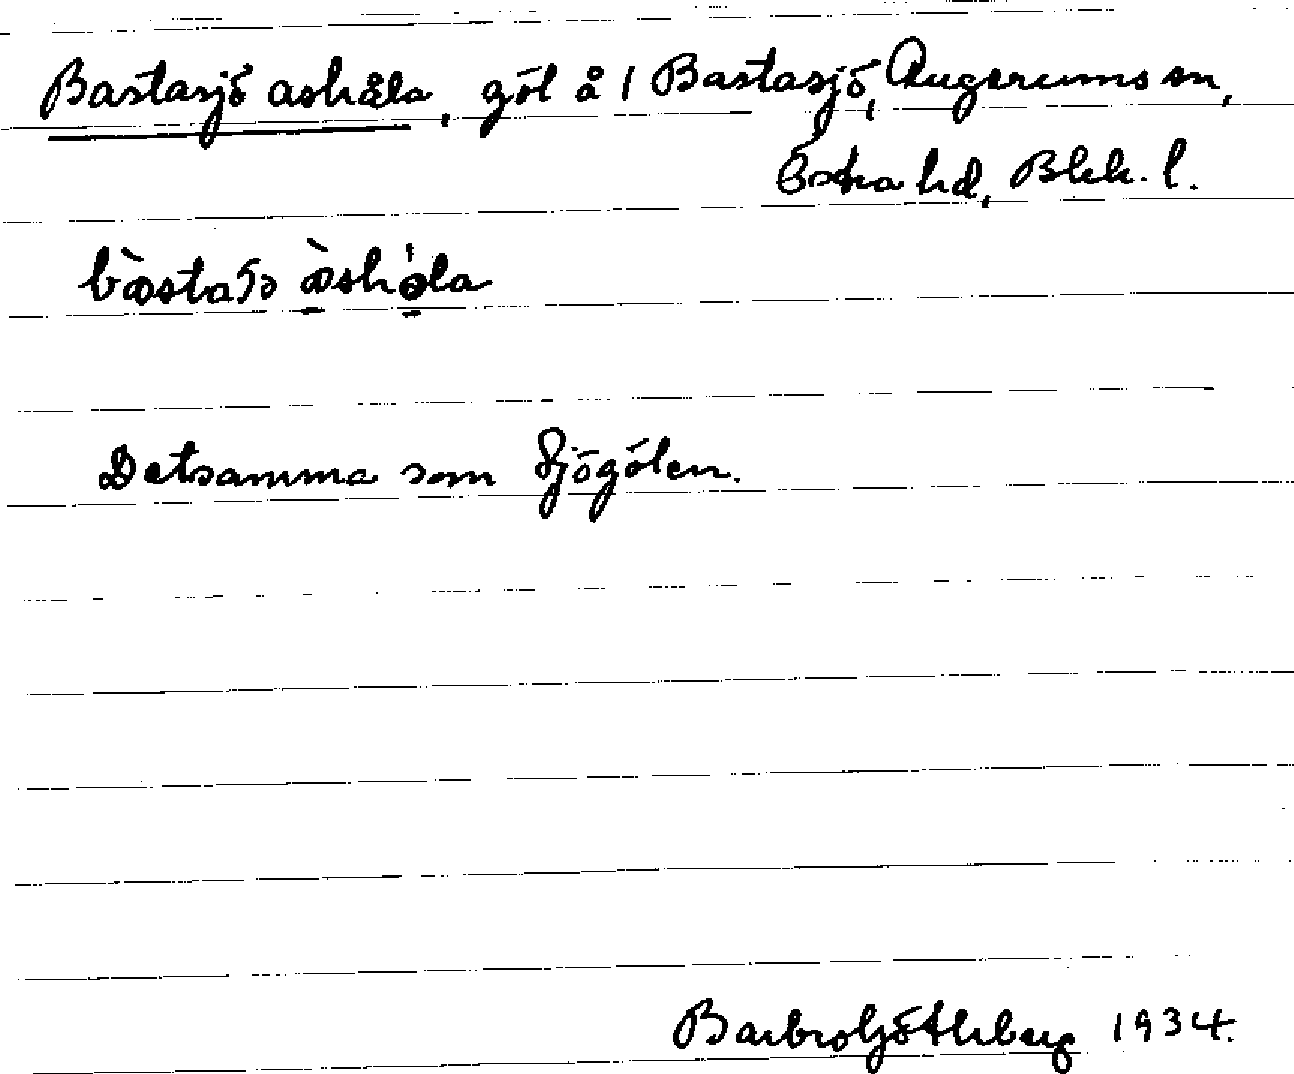 Bastasjö askåla, göl å 1 Bastasjö, Augerums sn,
Östra hd, Blek. l.
Detsamma som Sjögölen.
Barbro Göthberg 1934.